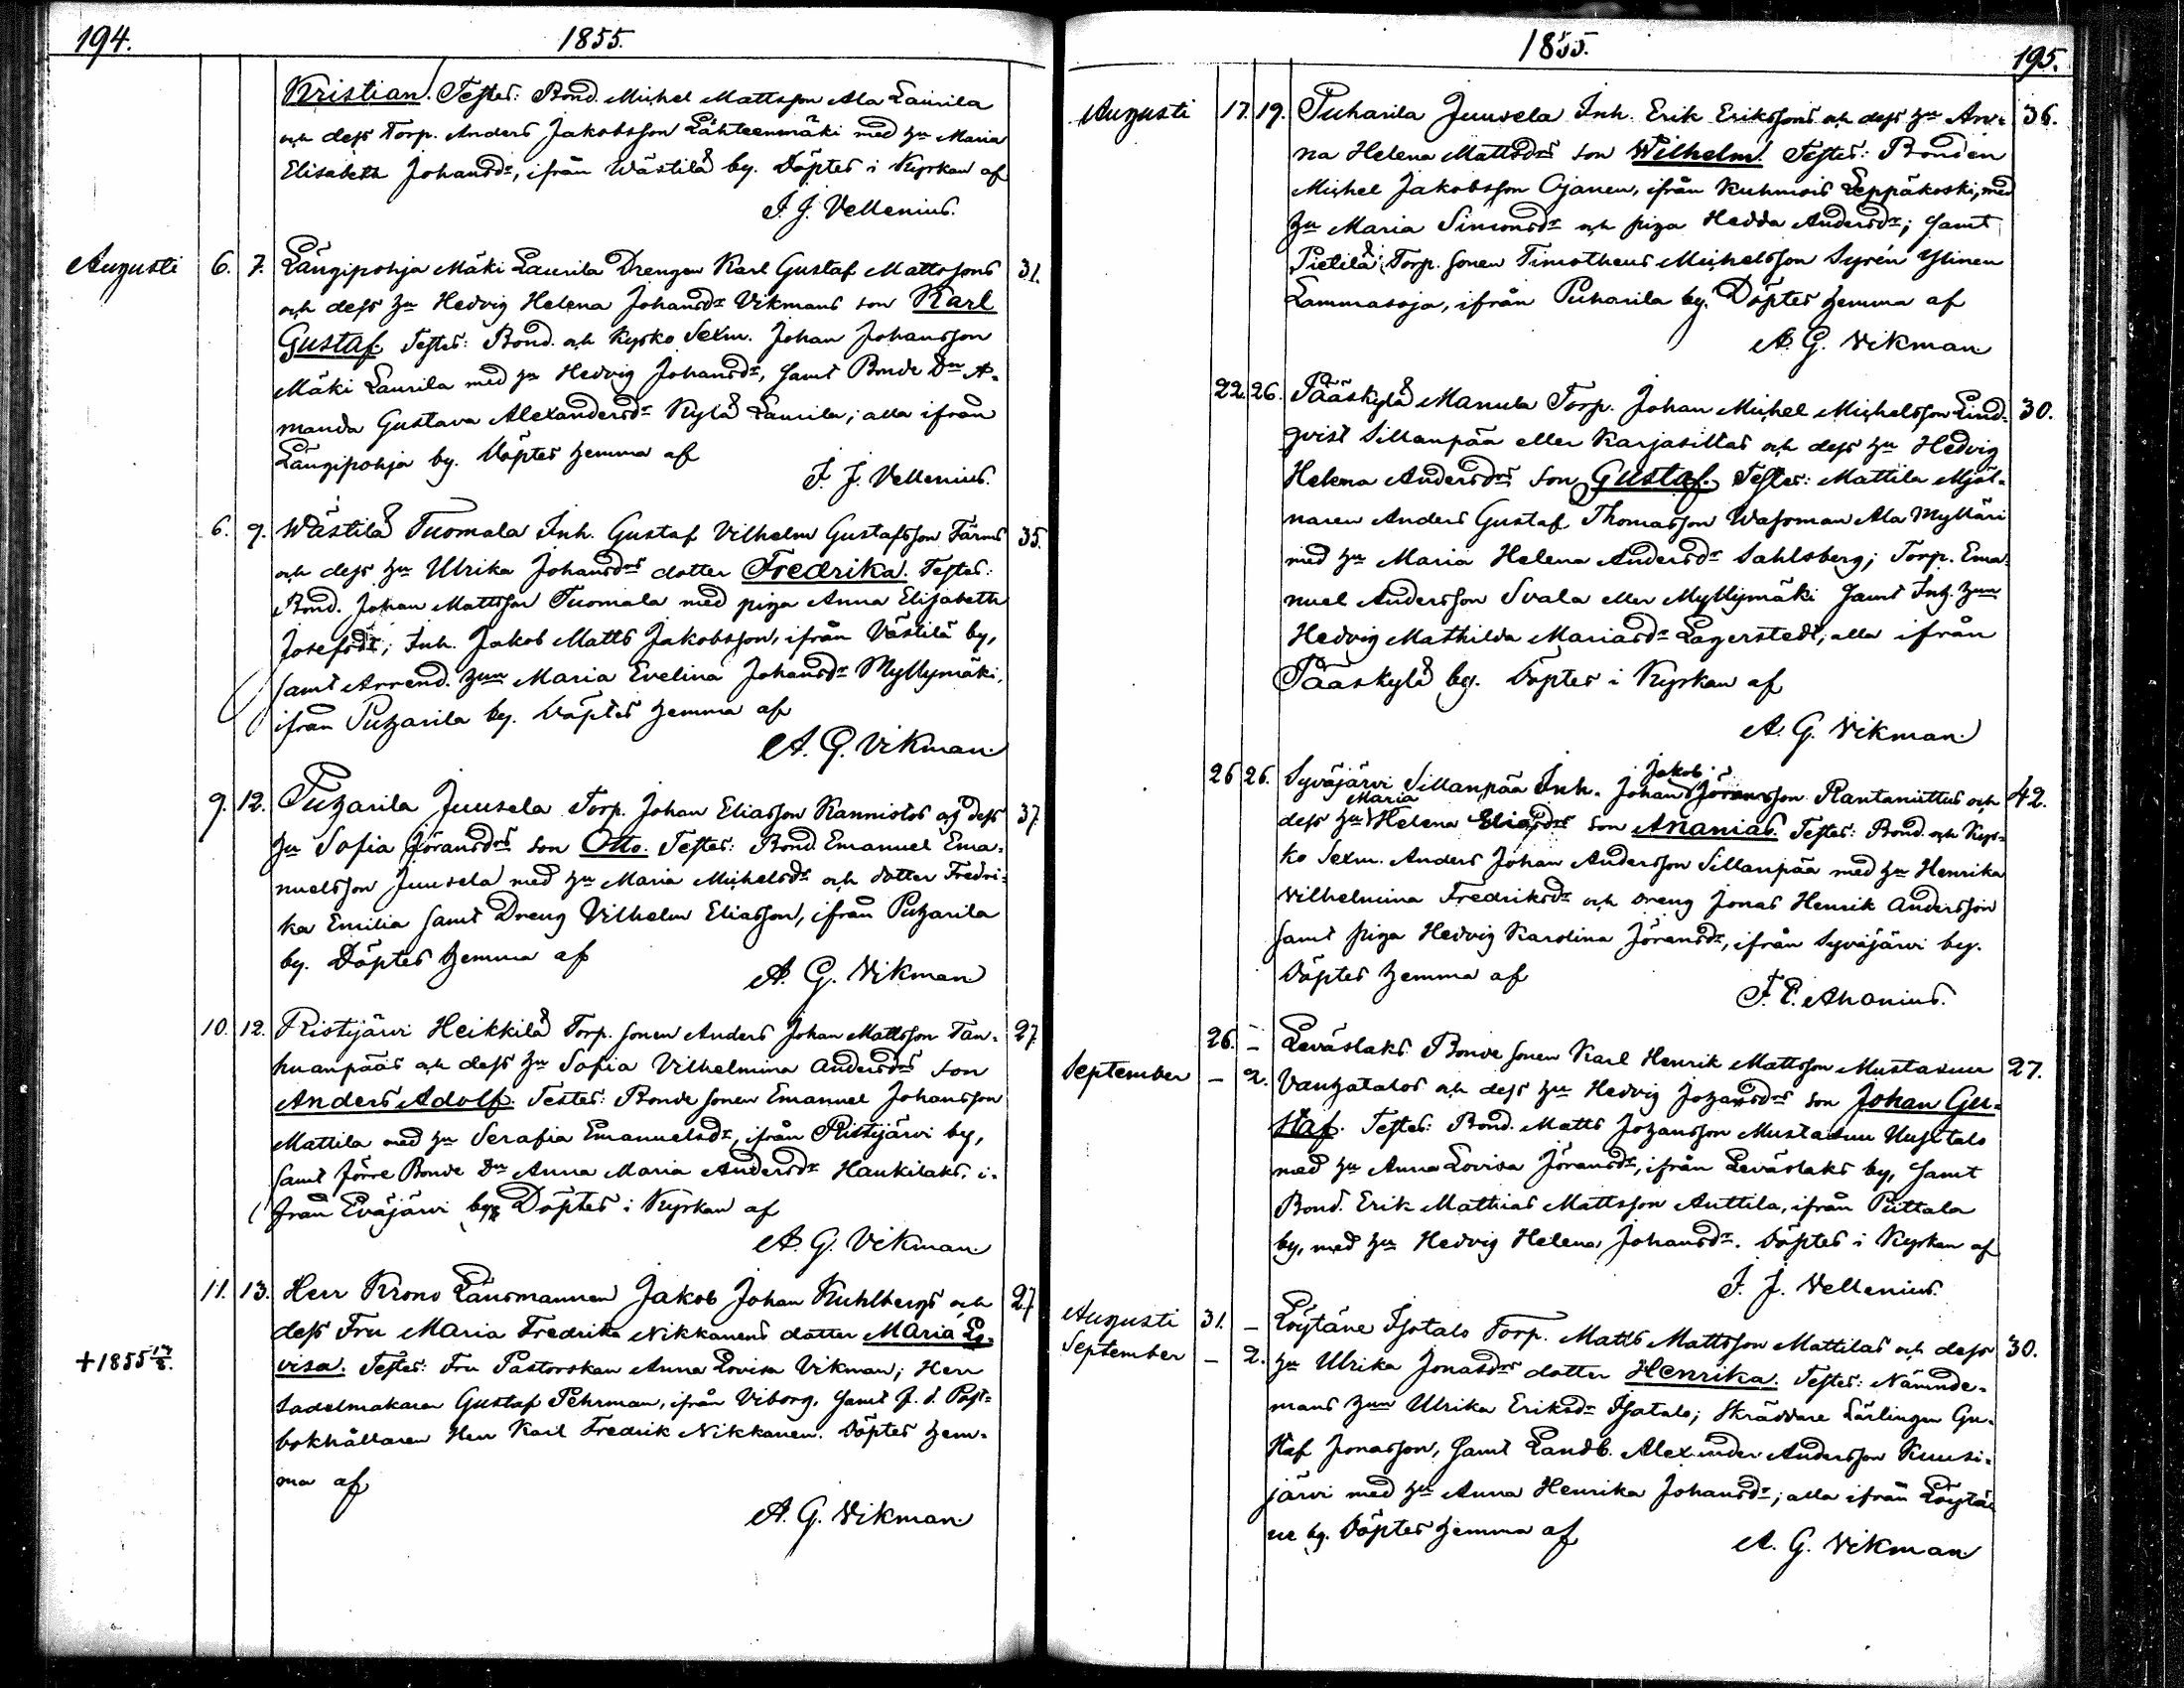 194.
1855.
Kristian. Testes: Bond. Michel Mattsson Ala Laurila
och dess Torp. Anders Jakobsson Lähteenmäki med hu Maria
Elisabeth Johansdr, ifrån Wästilä by. Döptes i Kyrkan af
F. J. Vellenius.
Augusti 6. 7. Längipohja Mäki Laurila Drengen Karl Gustaf Mattssons 31.
och dess hu Hedvig Helena Johansdr Vikmans son Karl
Gustaf. Testes: Bond. och Kyrko Sexm. Johan Johansson
Mäki Laurila med hu Hedvig Johansdr, samt Bonde Dn A-
manda Gustava Alexandersdr Kylä Laurila; alla ifrån
Längipohja by. Döptes hemma af
F. J. Vellenius.
6. 9. Wästilä Tuomala Inh. Gustaf Vilhelm Gustafsson Färms 35.
och dess hu Ulrika Johansdrs dotter Fredrika. Testes:
Bond. Johan Mattsson Tuomala med piga Anna Elisabeth
Josefsdr; Inh. Jakob Matts Jakobsson, ifrån Västilä by,
samt Arrend. hun Maria Evelina Johansdr Myllymäki,
ifrån Puharila by. Döptes hemma af
A. G. Vikman.
9. 12. Puharila Juusela Torp. Johan Eliasson Kannistos och dess 37.
hu Sofia Göransdrs son Otto. Testes: Bond. Emanuel Ema-
nuelsson Juusela med hu Maria Michelsdr och dotter Fredri-
ka Emilia samt Dreng Vilhelm Eliasson, ifrån Puharila
by. Döptes hemma af
A. G. Vikman.
10. 12. Ristijärvi Heikkilä Torp. sonen Anders Johan Mattsson Tan- 27.
huanpääs och dess hu Sofia Vilhelmina Andersdrs son
Anders Adolf. Testes: Bonde sonen Emanuel Johansson
Mattila med hu Serafia Emanuelsdr, ifrån Ristijärvi by,
samt förre Bonde Dn Anna Maria Andersdr Haukilaks. i-
från Eväjärvi by. Döptes i Kyrkan af
A. G. Vikman.
11. 13. Herr Krono Länsmannen Jakob Johan Kuhlbergs och 27
dess Fru Maria Fredrika Nikkanens dotter Maria Lo-
+1855 17/8. visa. Testes: Fru Pastorskan Anna Lovisa Vikman; Herr
Sadelmakaren Gustaf Pehrman, ifrån Viborg, samt f. d. Post-
bokhållaren Herr Karl Fredrik Nikkanen. Döptes hem-
ma af
A. G. Vikman.
1855.
195.
Augusti 17. 19. Puharila Juusela Inh. Erik Erikssons och dess hu An- 36.
na Helena Mattsdrs son Wilhelm. Testes: Bonden
Michel Jakobsson Ojanen, ifrån Kuhmois Leppäkoski, med
hu Maria Simonsdr och piga Hedda Andersdr; samt
Pietilä Torp. sonen Timotheus Michelsson Syrén Ylinen
Lammasoja, ifrån Puharila by. Döptes hemma af
A. G. Vikman.
22. 26. Pääskylä Manula Torp. Johan Michel Michelsson Lind- 30.
qvist Sillanpää eller Karjasillas och dess hu Hedvig
Helena Andersdrs son Gustaf. Testes: Mattila Mjöl-
naren Anders Gustaf Thomasson Wassman Ala Mylläri
med hu Maria Helena Andersdr Sahlsberg; Torp. Ema-
nuel Andersson Svala eller Myllymäki samt Inh. hun
Hedvig Mathilda Mariasdr Lagerstedt; alla ifrån
Pääskylä by. Döptes i Kyrkan af
A. G. Vikman.
Jakob
26 26. Syväjärvi Sillanpää Inh. Johan Göransson Rantaniittus och 42.
Maria
dess hu Helena Eliasdrs son Ananias. Testes: Bond. och Kyr-
ko Sexm. Anders Johan Andersson Sillanpää med hu Henrika
Vilhelmina Fredriksdr och dreng Jonas Henrik Andersson
samt piga Hedvig Karolina Göransdr, ifrån Syväjärvi by.
Döptes hemma af
F. E. Ahonius.
26. – Leväslaks Bonde sonen Karl Henrik Mattsson Mustasuu 27.
September – 2. Vanhatalos och dess hu Hedvig Johansdrs son Johan Gu-
staf. Testes: Bond. Matts Johansson Mustasuu Uusitalo
med hu Anna Lovisa Göransdr, ifrån Leväslaks by, samt
Bond. Erik Mathias Mattsson Anttila, ifrån Puttala
by, med hu Hedvig Helena Johansdr. Döptes i Kyrkan af
F. J. Vellenius.
Augusti 31. – Löytäne Isotalo Torp. Matts Mattsson Mattilas och dess 30.
September – 2. hu Ulrika Jonasdrs dotter Henrika. Testes: Nämnde-
mans hun Ulrika Eriksdr Isotalo; Skräddare Lärlingen Gu-
staf Jonasson, samt Landb. Alexander Andersson Kuusi-
järvi med hu Anna Henrika Johansdr; alla ifrån Löytä-
ne by. Döptes hemma af
A. G. Vikman